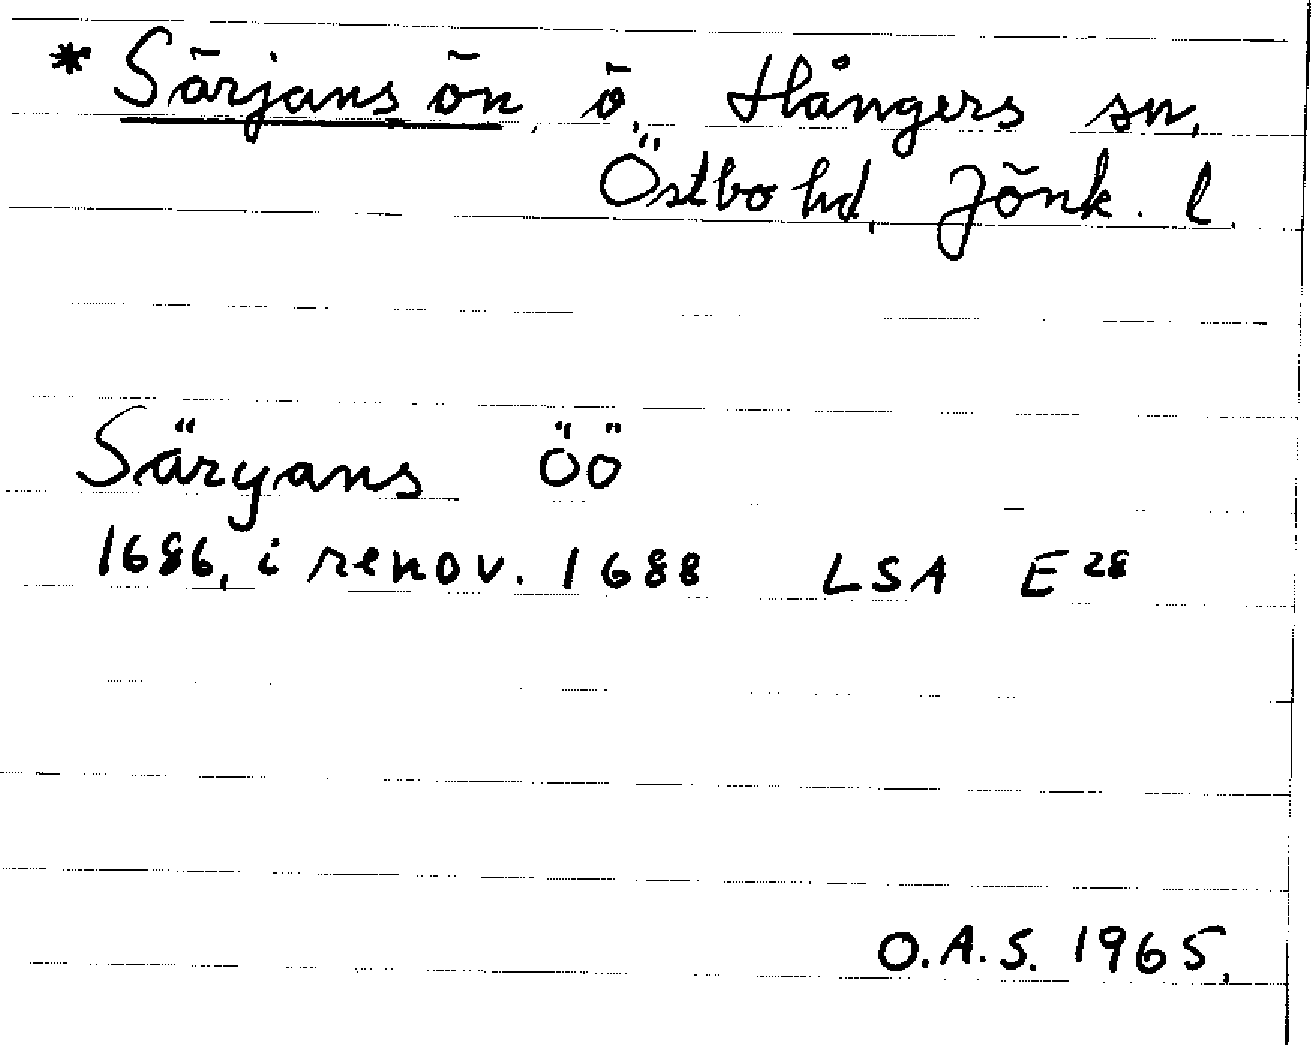 * Särjans ön, ö, Hångers sn,
Östbo hd, Jönk. l.
Säryans Öö
1686, i renov. 1688 LSA E 28
O.A.S. 1965.